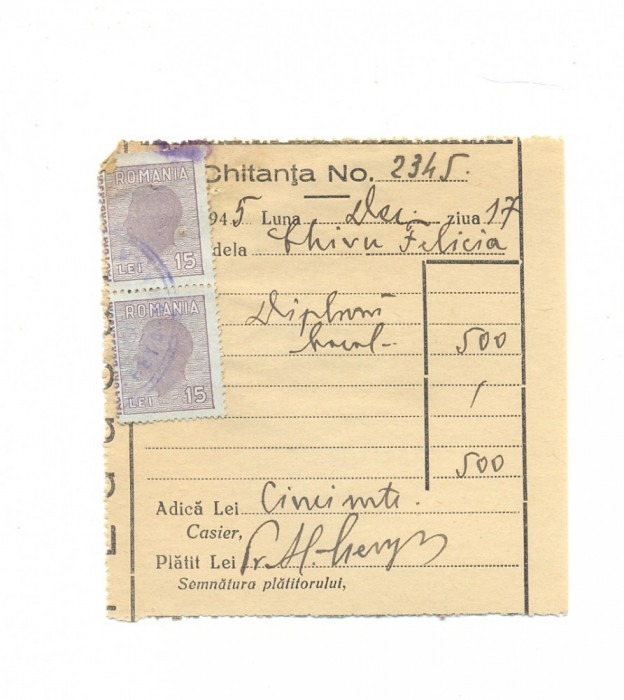 Chitanța No. 2345.
945 Luna Dec. ziua 17
dela Chivu Felicia
Diplomă
bacal. 500
500
Adică Lei Cincisute.
Casier,
Plătit Lei
Semnătura plătitorului,
ROMANIA
LEI 15
ROMANIA
LEI 15